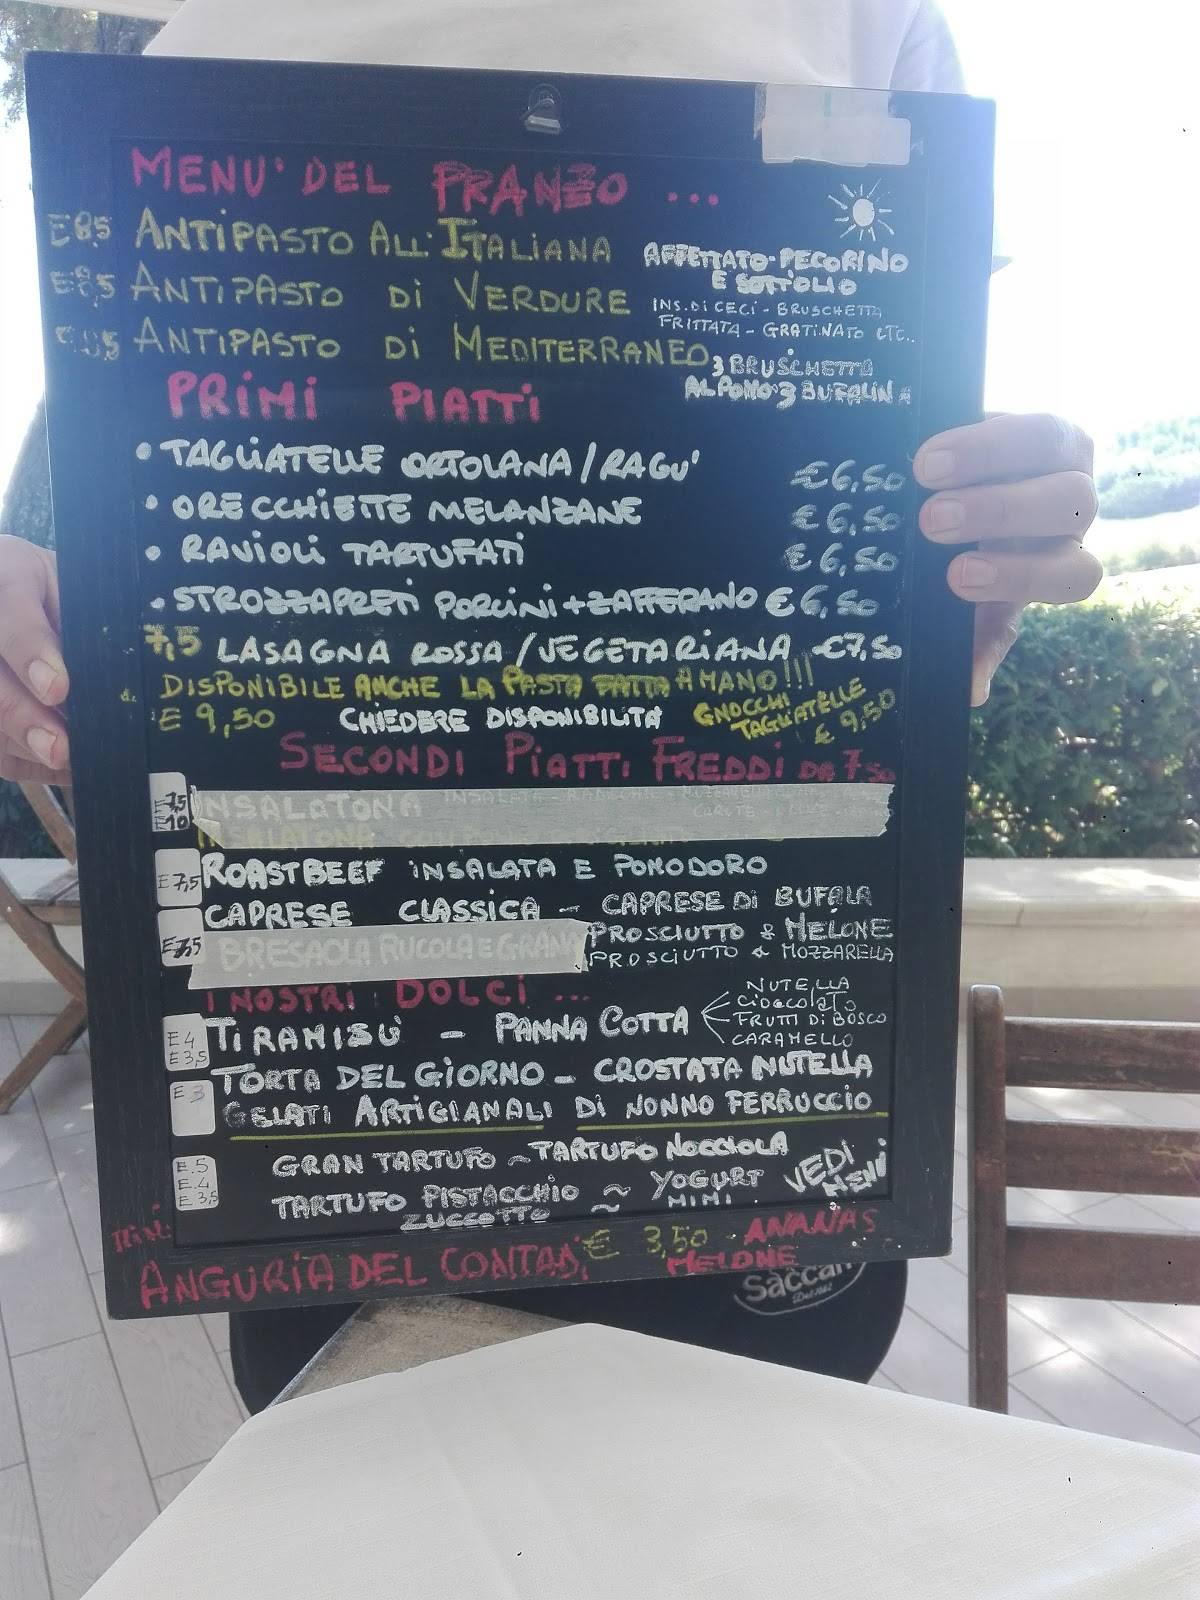 MENU' DEL PRANZO ...
E 8,5 ANTIPASTO ALL'ITALIANA
AFFETTATO-PECORINO
E SOTTOLIO
E 8,5 ANTIPASTO di VERDURE
INS. DI CECI - BRUSCHETTA
FRITTATA - GRATINATO ETC..
ANTIPASTO di MEDITERRANEO
3 BRUSCHETTA
AL POMO 3 BUFALINA
PRIMI PIATTI
• TAGLIATELLE ORTOLANA/RAGU' €6,50
• ORECCHIETTE MELANZANE €6,50
• RAVIOLI TARTUFATI €6,50
• STROZZAPRETI PORCINI+ZAFFERANO €6,50
7,5 LASAGNA ROSSA/VEGETARIANA €7,50
DISPONIBILE ANCHE LA PASTA FATTA A MANO!!!
E 9,50 CHIEDERE DISPONIBILITA
GNOCCHI
TAGLIATELLE
€ 9,50
SECONDI PIATTI FREDDI DA 7 50
E 7,5 INSALATONA
E10 INSALATONA
E 7,5 ROASTBEEF INSALATA E POMODORO
CAPRESE CLASSICA - CAPRESE DI BUFALA
E 7,5 BRESAOLA RUCOLA E GRANA
PROSCIUTTO & MELONE
PROSCIUTTO & MOZZARELLA
I NOSTRI DOLCI ...
E 4 TIRAMISÙ - PANNA COTTA
E 3,5
NUTELLA
CIOCCOLATO
FRUTTI DI BOSCO
CARAMELLO
E 3 TORTA DEL GIORNO - CROSTATA NUTELLA
GELATI ARTIGIANALI DI NONNO FERRUCCIO
E.5 GRAN TARTUFO ~ TARTUFO NOCCIOLA
E.4 TARTUFO PISTACCHIO ~ YOGURT
E 3,5 ZUCCOTTO MIMI
VEDI
MENÙ
ANGURIA DEL CONTADI € 3,50 - ANANAS
MELONE